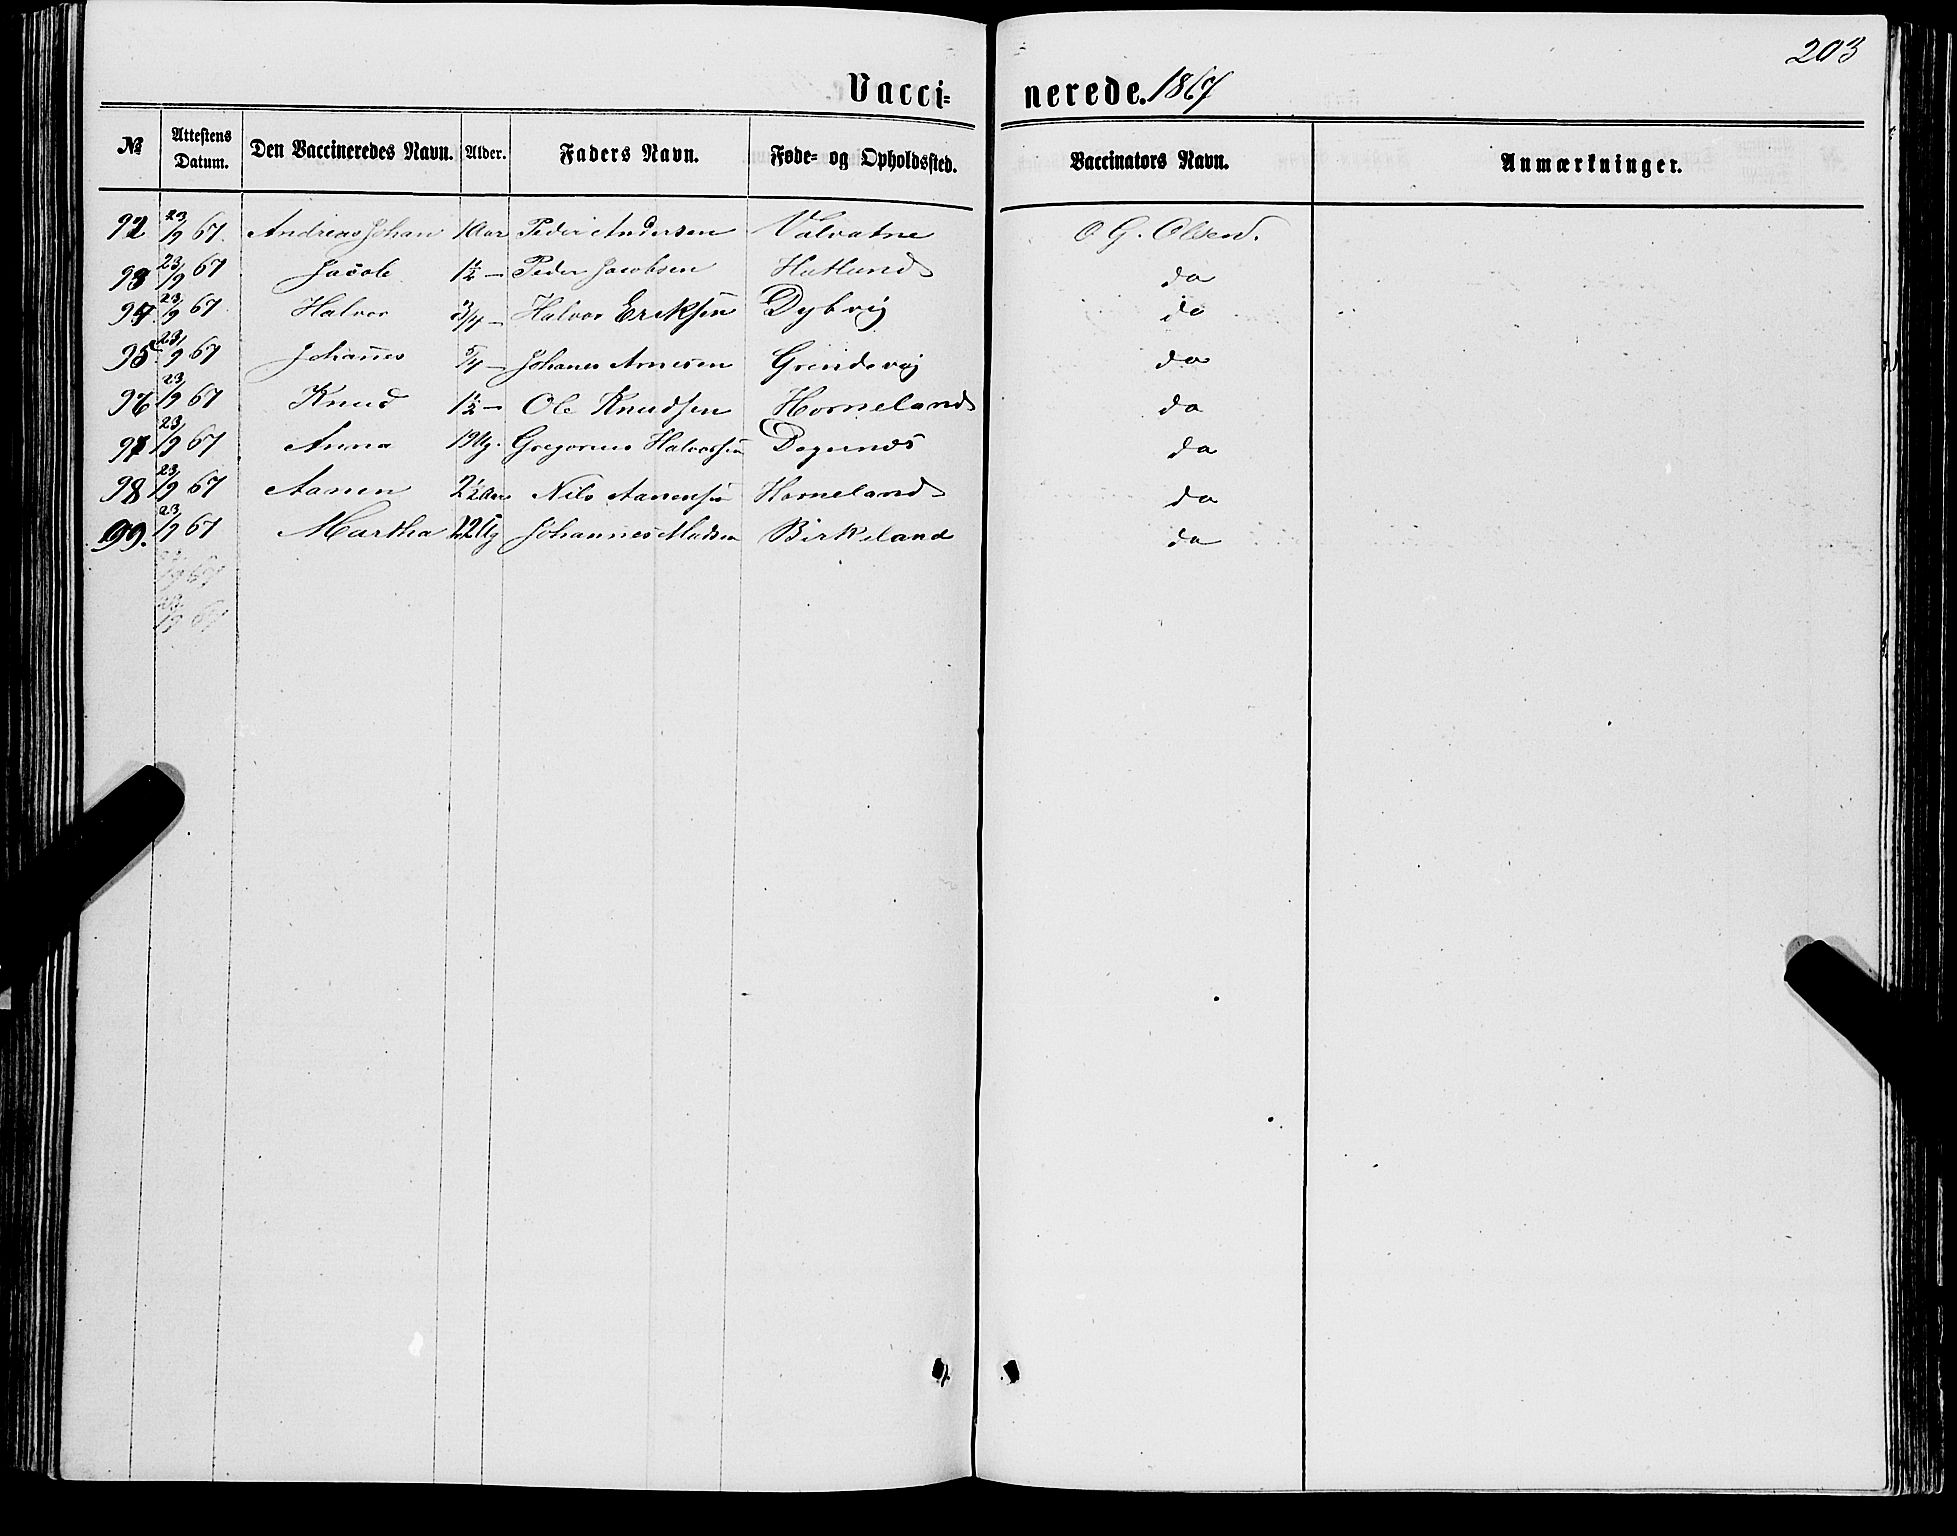 203
Vacci= nerede. 1867
№ Attestens Datum. Den Vaccineredes Navn. Alder. Faders Navn. Føde= og Opholdssted. Vaccinators Navn. Anmærkninger.
92 23/9 67. Andreas Johan 1 Aar Peder Andersen Valvatne O G. Olsen.
93 23/9 67 Jacob 1½ – Peder Jacobsen Hatland do
94 23/9 67. Halvor 3/4 – Halvor Eriksen Dybvig do
95 23/9 67 Johannes 5/4 – Johanes Arnesen Grindevig do
96 23/9 67 Knud 1½ – Ole Knudsen Horneland do
97 23/9 67 Anna Gregorius Halvorsen do
98 23/9 67 Aanen 2½ Aar Nils Aanensen Horneland do
99. 23/9 67 Martha Johannes Madsen Birkeland do
/9 67
23/9 67